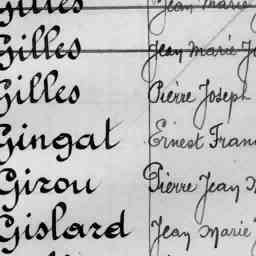 Gilles Jean Marie
Gilles Jean Marie
Gilles Pierre Joseph
Gingat Ernest
Girou Pierre Jean
Gislard Jean Marie